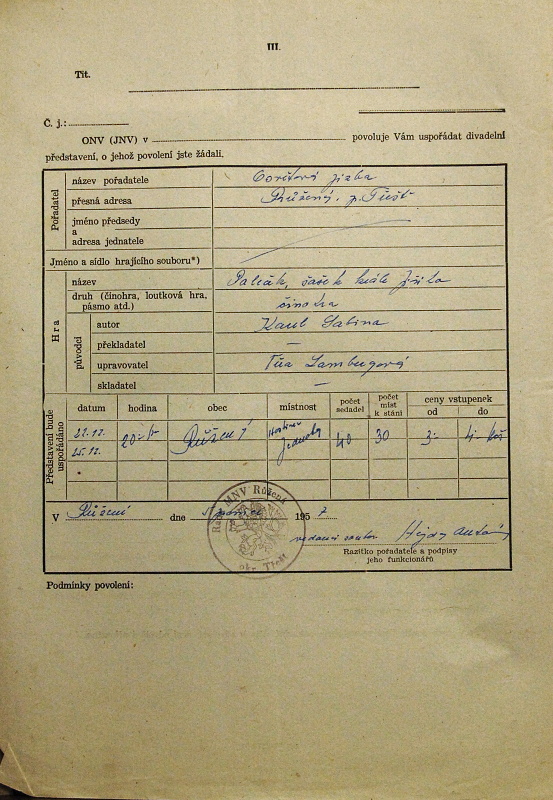 III.
Tit.
Č. j.:
ONV (JNV) v povoluje Vám uspořádat divadelní
představení, o jehož povolení jste žádali.
Pořadatel
název pořadatele
přesná adresa Růžená, p. Třešť
jméno předsedy
a
adresa jednatele
Jméno a sídlo hrajícího souboru*)
Hra
název Paleček, šašek krále Jiřího
druh (činohra, loutková hra, činohra
pásmo atd.)
původci
autor Karel Sabina
překladatel —
upravovatel Lambergová
skladatel —
Představení bude uspořádáno
datum hodina obec místnost počet sedadel počet míst k stání ceny vstupenek od do
22.12. 20 Růžená Hostinec Jednoty 40 30 3.- 4.- Kčs
25.12.
V Růžené dne prosince 1957
Rada MNV Růžená
okr. Třešť
vedoucí souboru
Razítko pořadatele a podpisy
jeho funkcionářů
Podmínky povolení: